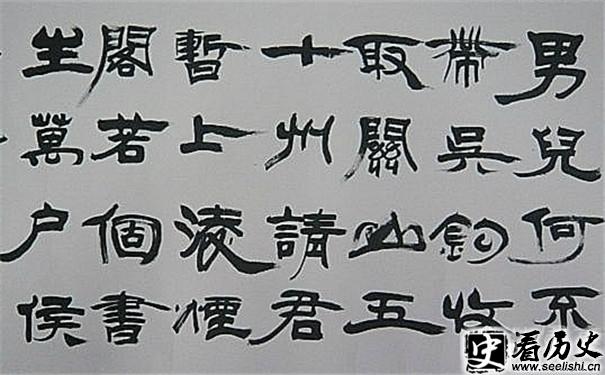 男兒何不
帶吳鈎收
取關山五
十州請君
暫上淩煙
閣若個書
生萬户侯
史 看历史
www.seelishi.cn